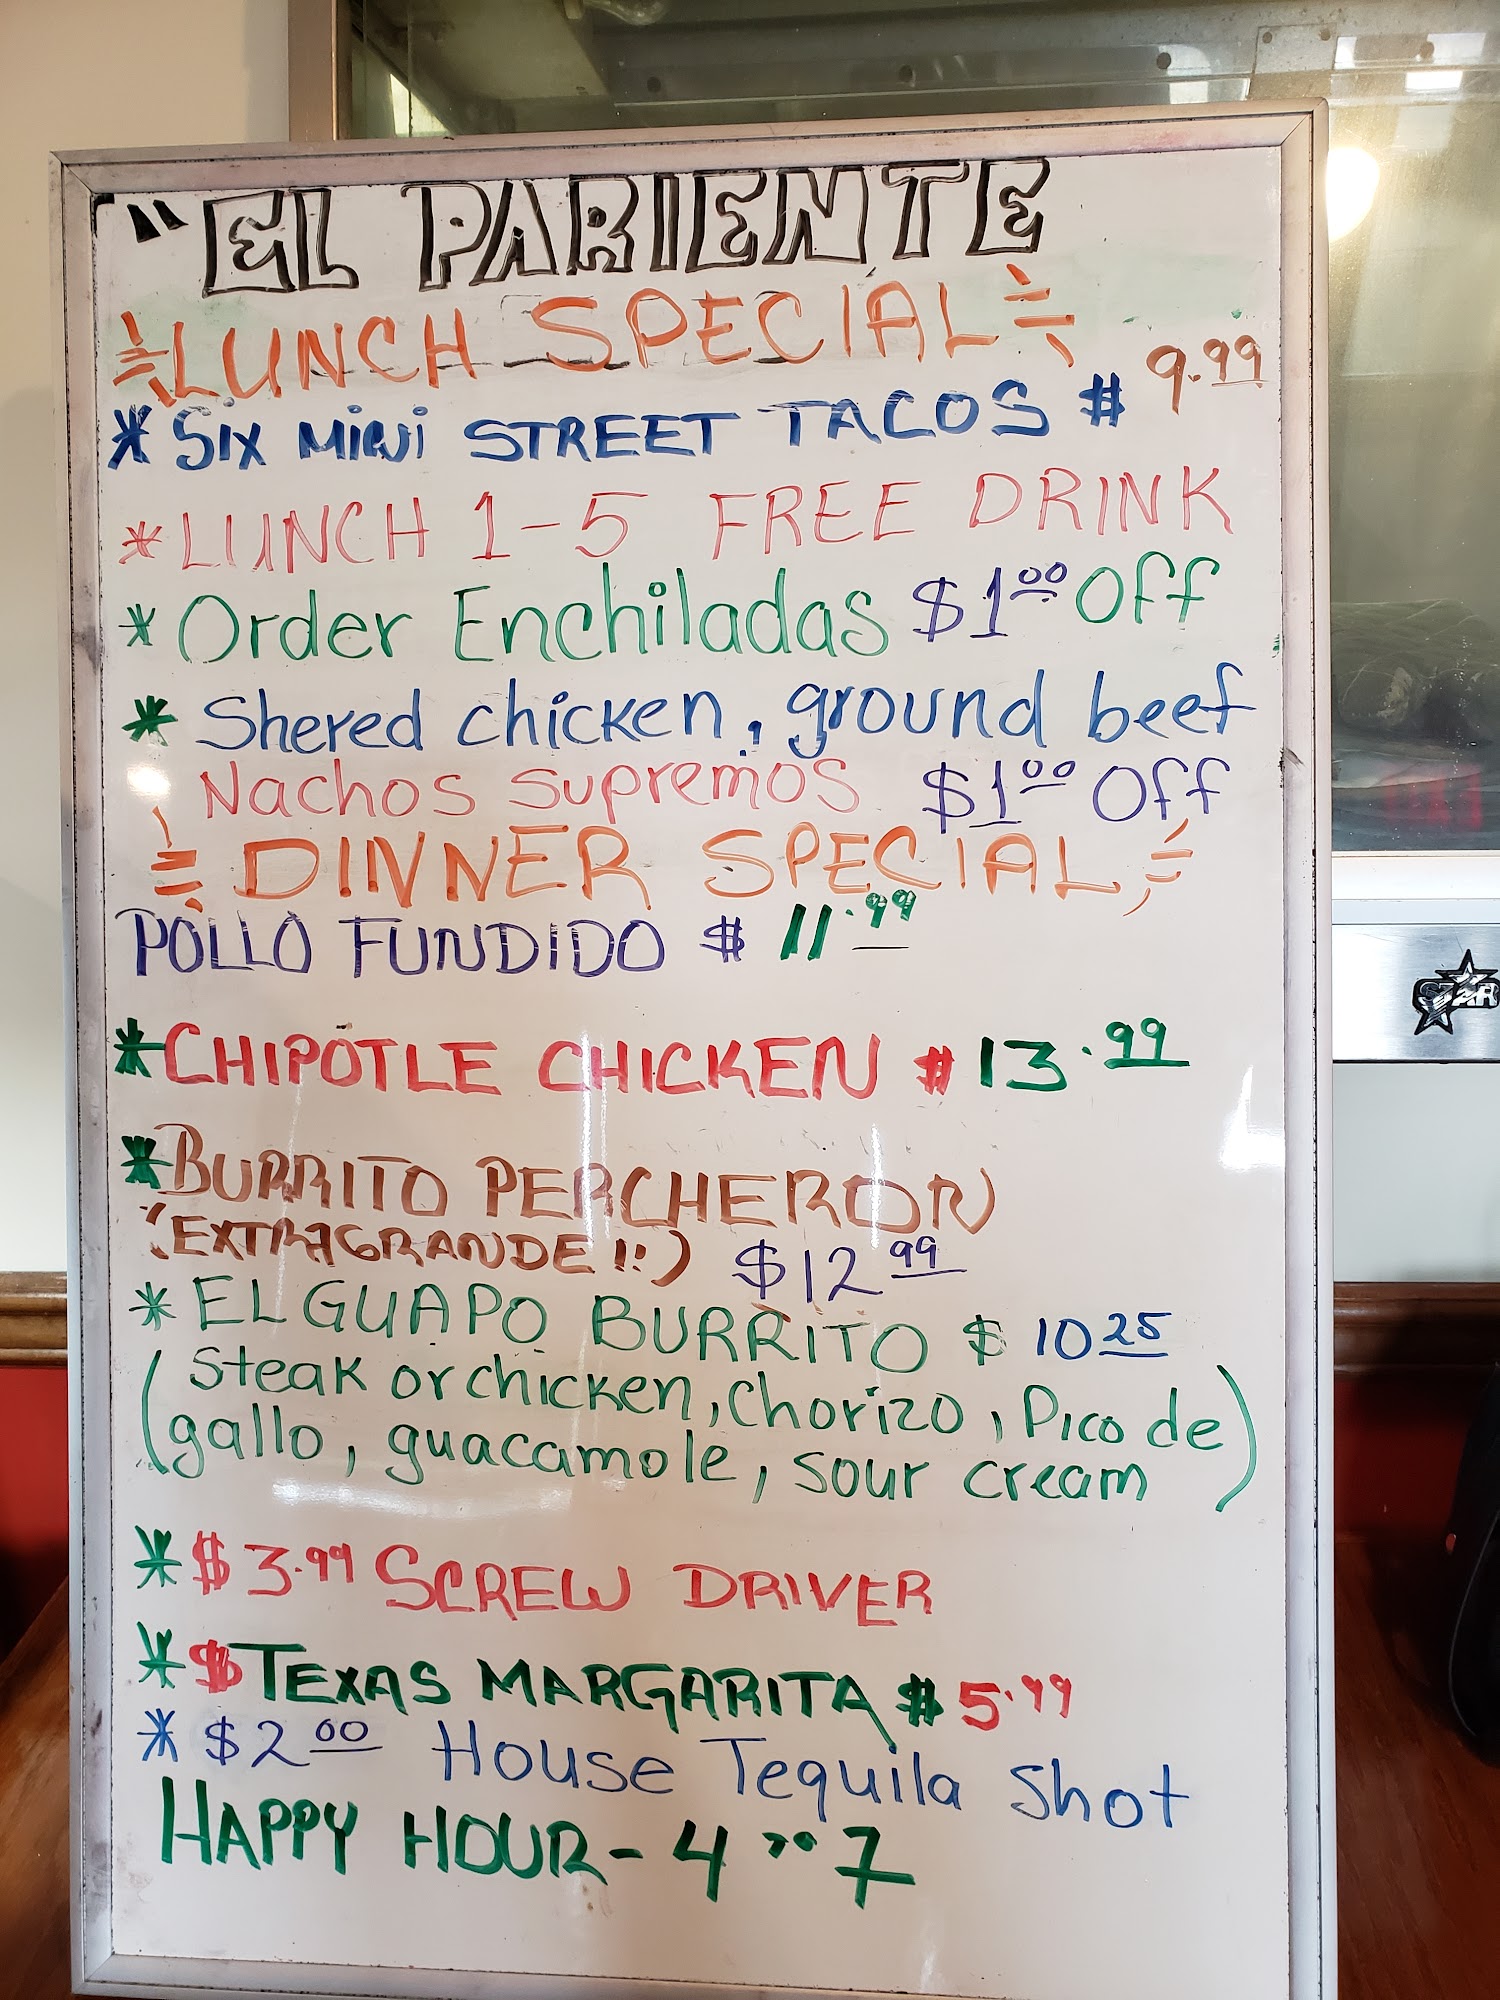 "EL PARIENTE
LUNCH SPECIAL
* SIX MINI STREET TACOS $ 9.99
* LUNCH 1-5 FREE DRINK
* Order Enchiladas $1.00 Off
* Shered chicken, ground beef
Nachos supremos $1.00 Off
DINNER SPECIAL
POLLO FUNDIDO $ 11.99
* CHIPOTLE CHICKEN $ 13.99
* BURRITO PERCHERON
(EXTRAGRANDE!!) $12 99
* EL GUAPO BURRITO $ 10 25
(steak or chicken, chorizo, Pico de
gallo, guacamole, sour cream)
* $3.99 SCREW DRIVER
* $TEXAS MARGARITA $ 5.99
* $2 00 House Tequila Shot
HAPPY HOUR - 4 " 7
STAR